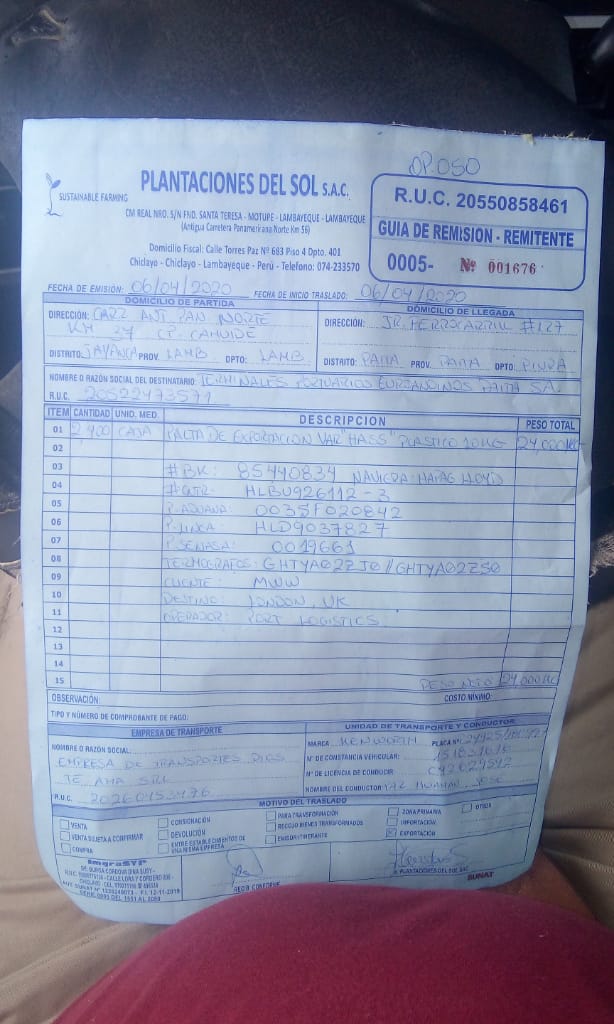 OP.050
SUSTAINABLE FARMING
PLANTACIONES DEL SOL S.A.C.
CM REAL NRO. S/N FND. SANTA TERESA - MOTUPE - LAMBAYEQUE - LAMBAYEQUE
(Antigua Carretera Panamericana Norte Km 56)
Domicilio Fiscal: Calle Torres Paz Nº 683 Piso 4 Dpto. 401
Chiclayo - Chiclayo - Lambayeque - Perú - Telefono: 074-233570
R.U.C. 20550858461
GUIA DE REMISION - REMITENTE
0005- Nº 001676
FECHA DE EMISIÓN: 06/04/2020 FECHA DE INICIO TRASLADO: 06/04/2020
DOMICILIO DE PARTIDA
DIRECCIÓN: CARR ANT. PAN NORTE
KM 37 CP. CAHUIDE
DISTRITO: JAYANCA PROV. LAMB DPTO: LAMB
DOMICILIO DE LLEGADA
DIRECCIÓN: JR. FERROCARRIL #127
DISTRITO: PAITA PROV. PAITA DPTO: PIURA
NOMBRE O RAZÓN SOCIAL DEL DESTINATARIO: TERMINALES PORTUARIOS EUROANDINOS PAITA SA.
R.U.C. 20522473571
ITEM CANTIDAD UNID. MED. DESCRIPCION PESO TOTAL
01 2,400 CAJA PALTA DE EXPORTACION VAR "HASS" PLASTICO 10KG 24,000KG
02
03 #BK: 85440834 NAVIERA: HAPAG LLOYD
04 #CTR: HLBU926112-3
05 P. ADUANA: 0035F020842
06 P. LINEA: HLD9037827
07 P. SENASA: 0019661
08 TERMOGRAFOS: GHTYA02ZJ0//GHTYA02ZS0
09 CLIENTE: MWW
10 DESTINO: LONDON, UK
11 OPERADOR: PORT LOGISTICS
12
13
14
15 PESO NETO 24,000KG
OBSERVACIÓN: COSTO MÍNIMO:
TIPO Y NÚMERO DE COMPROBANTE DE PAGO:
EMPRESA DE TRANSPORTE
NOMBRE O RAZÓN SOCIAL:
EMPRESA DE TRANSPORTES DIOS
TE AMA SRL
R.U.C. 20260453476
UNIDAD DE TRANSPORTE Y CONDUCTOR
MARCA KENWORTH PLACA Nº
Nº DE CONSTANCIA VEHICULAR:
Nº DE LICENCIA DE CONDUCIR
NOMBRE DEL CONDUCTOR HUAMAN JOSE
MOTIVO DEL TRASLADO
VENTA
VENTA SUJETA A CONFIRMAR
COMPRA
CONSIGNACIÓN
DEVOLUCIÓN
ENTRE ESTABLECIMIENTOS DE UNA MISMA EMPRESA
PARA TRANSFORMACIÓN
RECOJO BIENES TRANSFORMADOS
EMISOR ITINERANTE
ZONA PRIMARIA
IMPORTACIÓN
EXPORTACIÓN
OTROS
ImgraSYP
RECIBI CONFORME
P. PLANTACIONES DEL SOL SAC
SUNAT